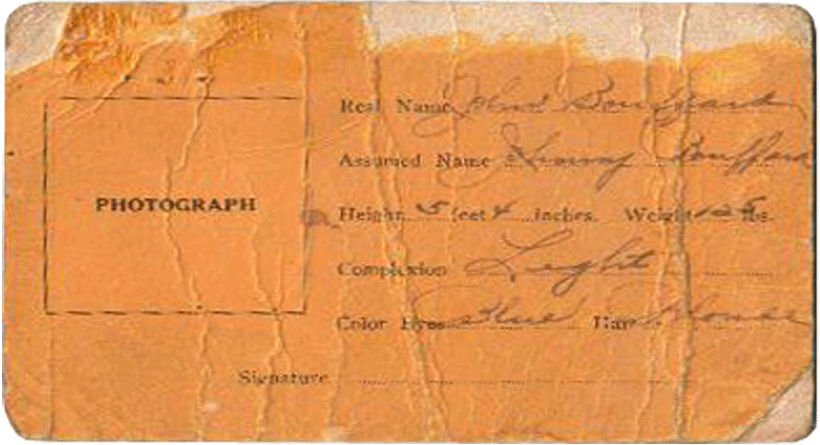 PHOTOGRAPH
Real Name John Bouffard
Assumed Name Bouffard
Height 5 feet 4 inches. Weight 125 lbs.
Complexion Light
Color Eyes Blue Hair Blonde
Signature